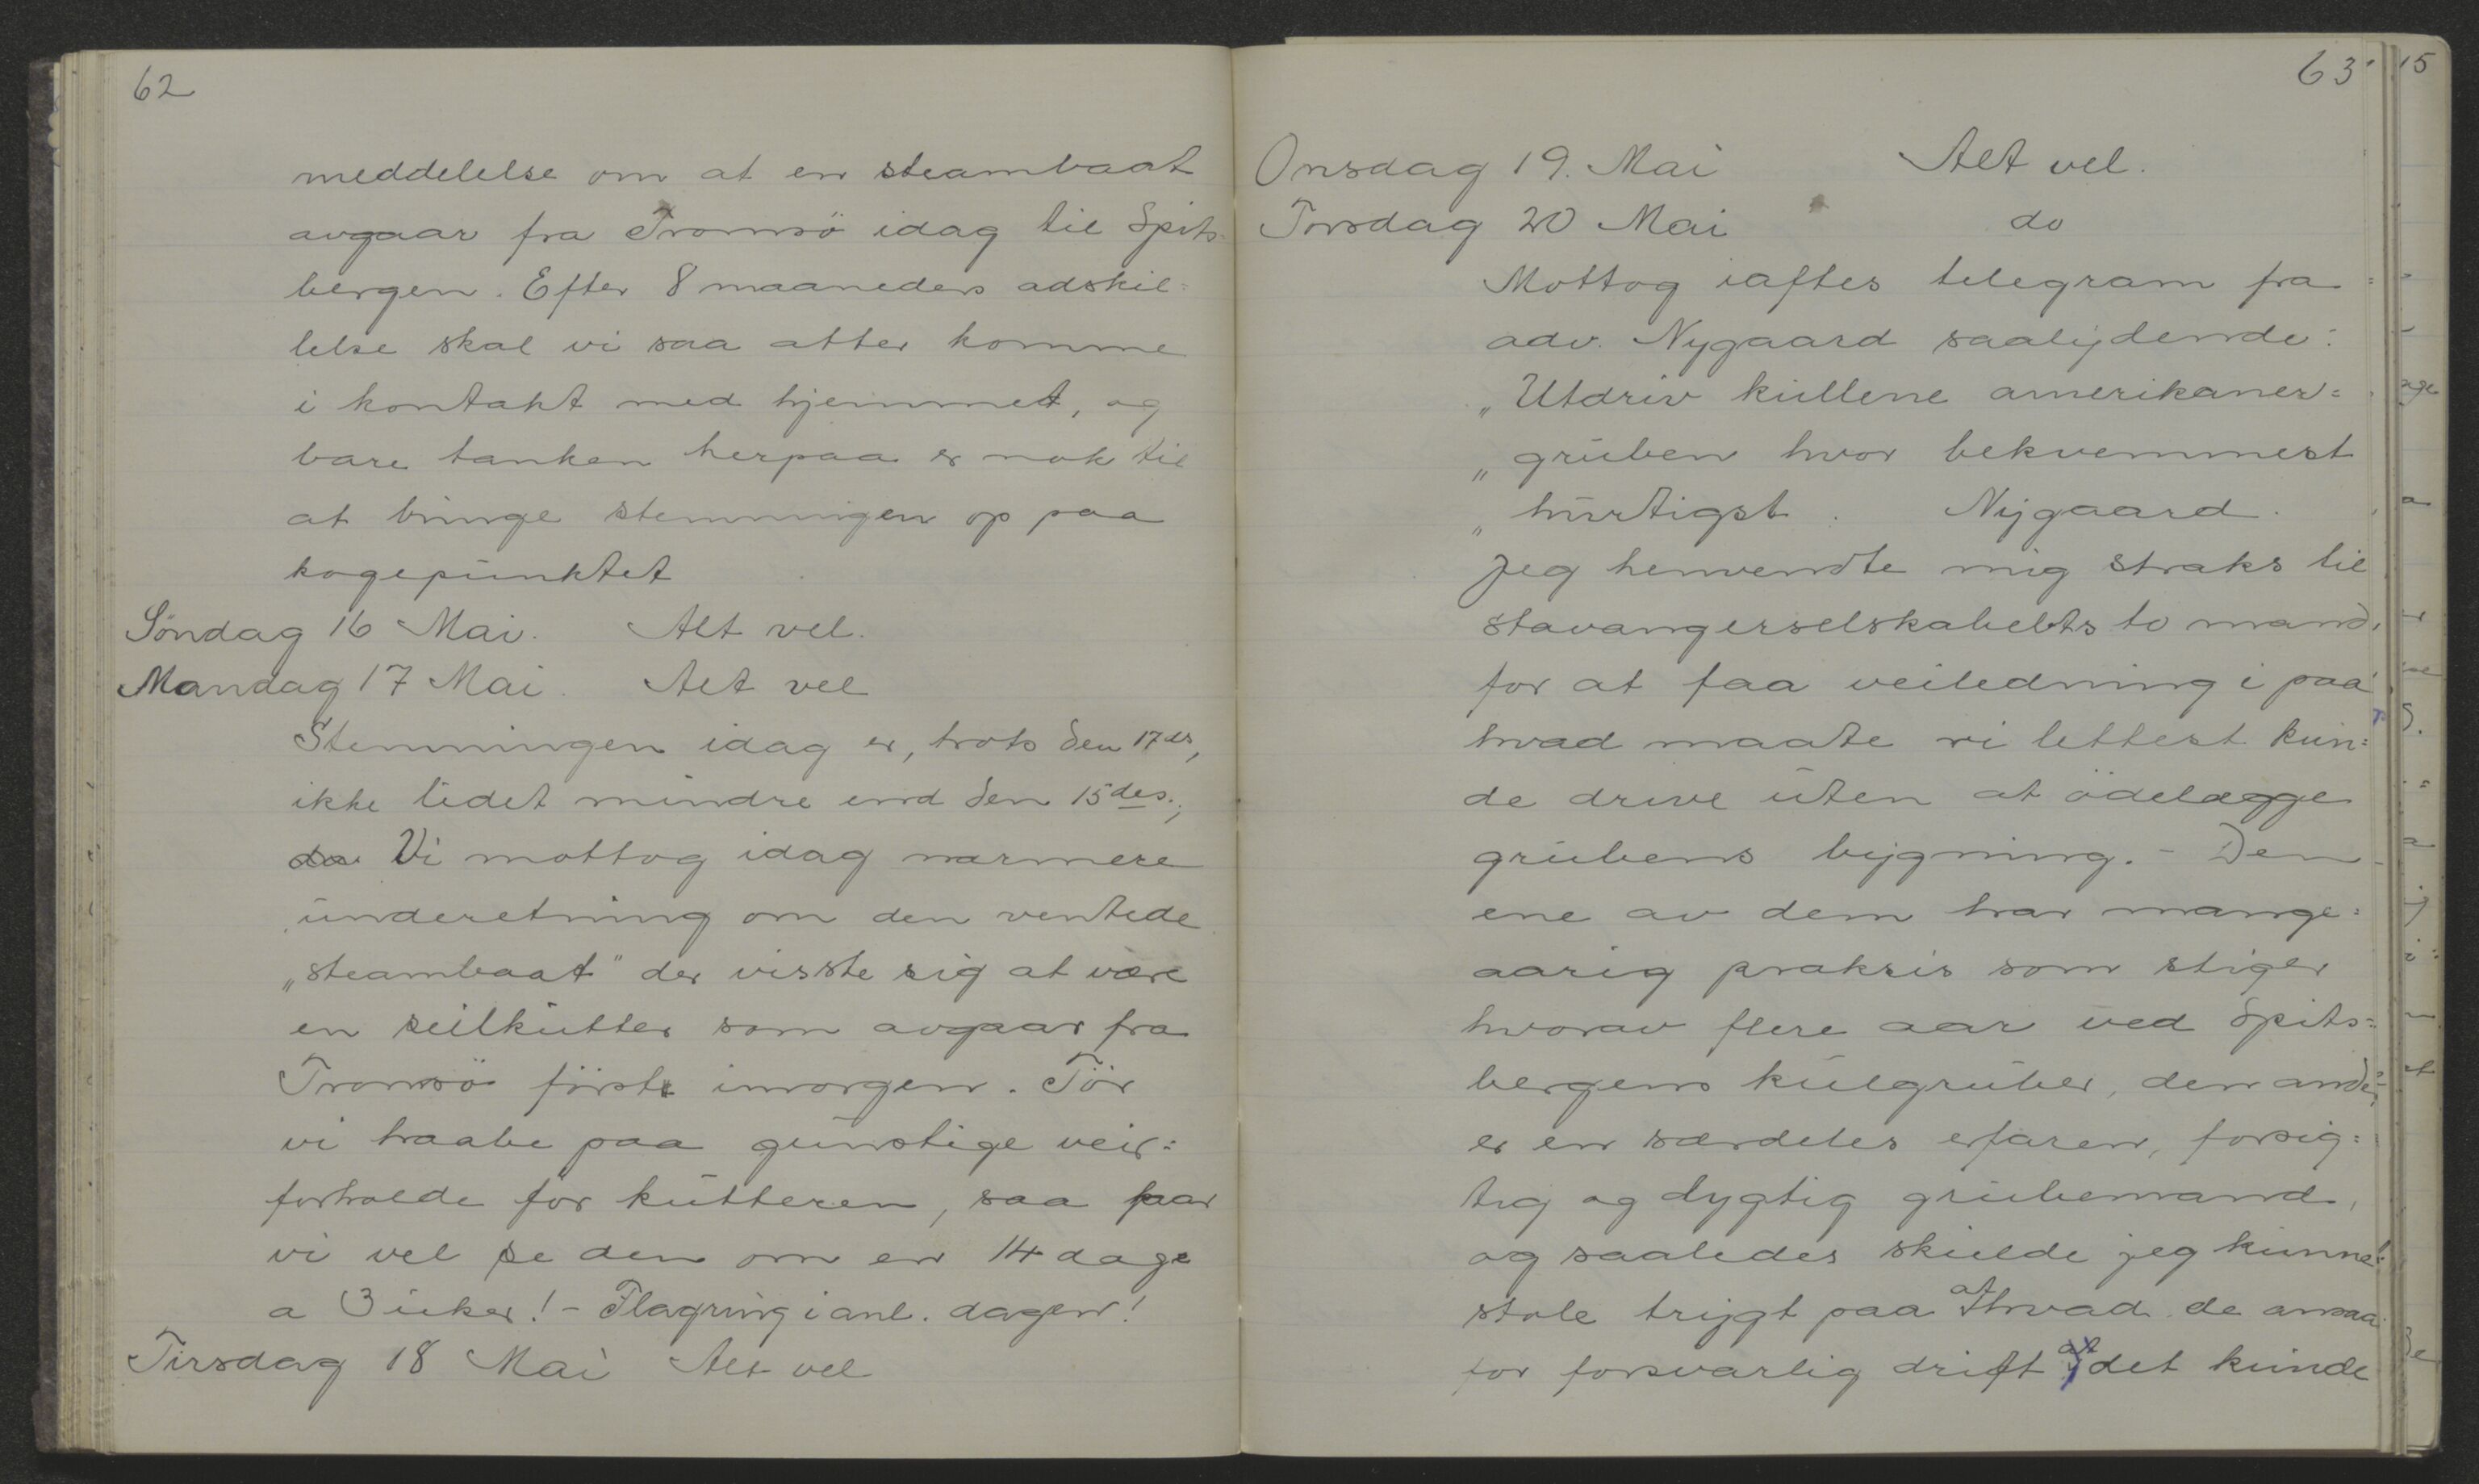 62
meddelelse om at en steambaat
avgaar fra Tromsö idag til Spits-
bergen. Efter 8 maaneders adskil=
lelse skal vi saa atter komme
i kontakt med hjemmet, og
bare tanken herpaa er nok til
at bringe stemningen op paa
kogepunktet
Söndag 16 Mai. Alt vel.
Mandag 17 Mai. Alt vel
Stemningen idag er, trots den 17des,
ikke lidet mindre end den 15des.,
da Vi mottog idag nærmere
underetning om den ventede
„steambaat" der visste sig at være
en seilkutter som avgaar fra
Tromsö först imorgen. Tör
vi haabe paa gunstige veir=
forholde for kutteren, saa faar
vi vel se den om en 14 dage
a 3 uker! - Flagring i anl. dagen!
Tirsdag 18 Mai Alt vel
63
Onsdag 19. Mai Alt vel.
Torsdag 20 Mai do
Mottog iaftes telegram fra
adv. Nygaard saalydende:
„Utdriv kullene amerikaner=
„gruben hvor bekvemmest
„hurtigst. Nygaard.
Jeg henvendte mig straks til
stavangerselskabets to mand,
for at faa veiledning i paa
hvad maate vi lettest kun=
de drive uten at ödelægge
grubens bygning. - Den
ene av dem har mange=
aarig praksis som stiger
hvorav flere aar ved Spits=
bergens kulgruber, den anden
er en særdeles erfaren, forsig=
tig og dygtig grubemand,
og saaledes skulde jeg kunne
stole trygt paa at hvad de ansaa
for forsvarlig drift at det kunde